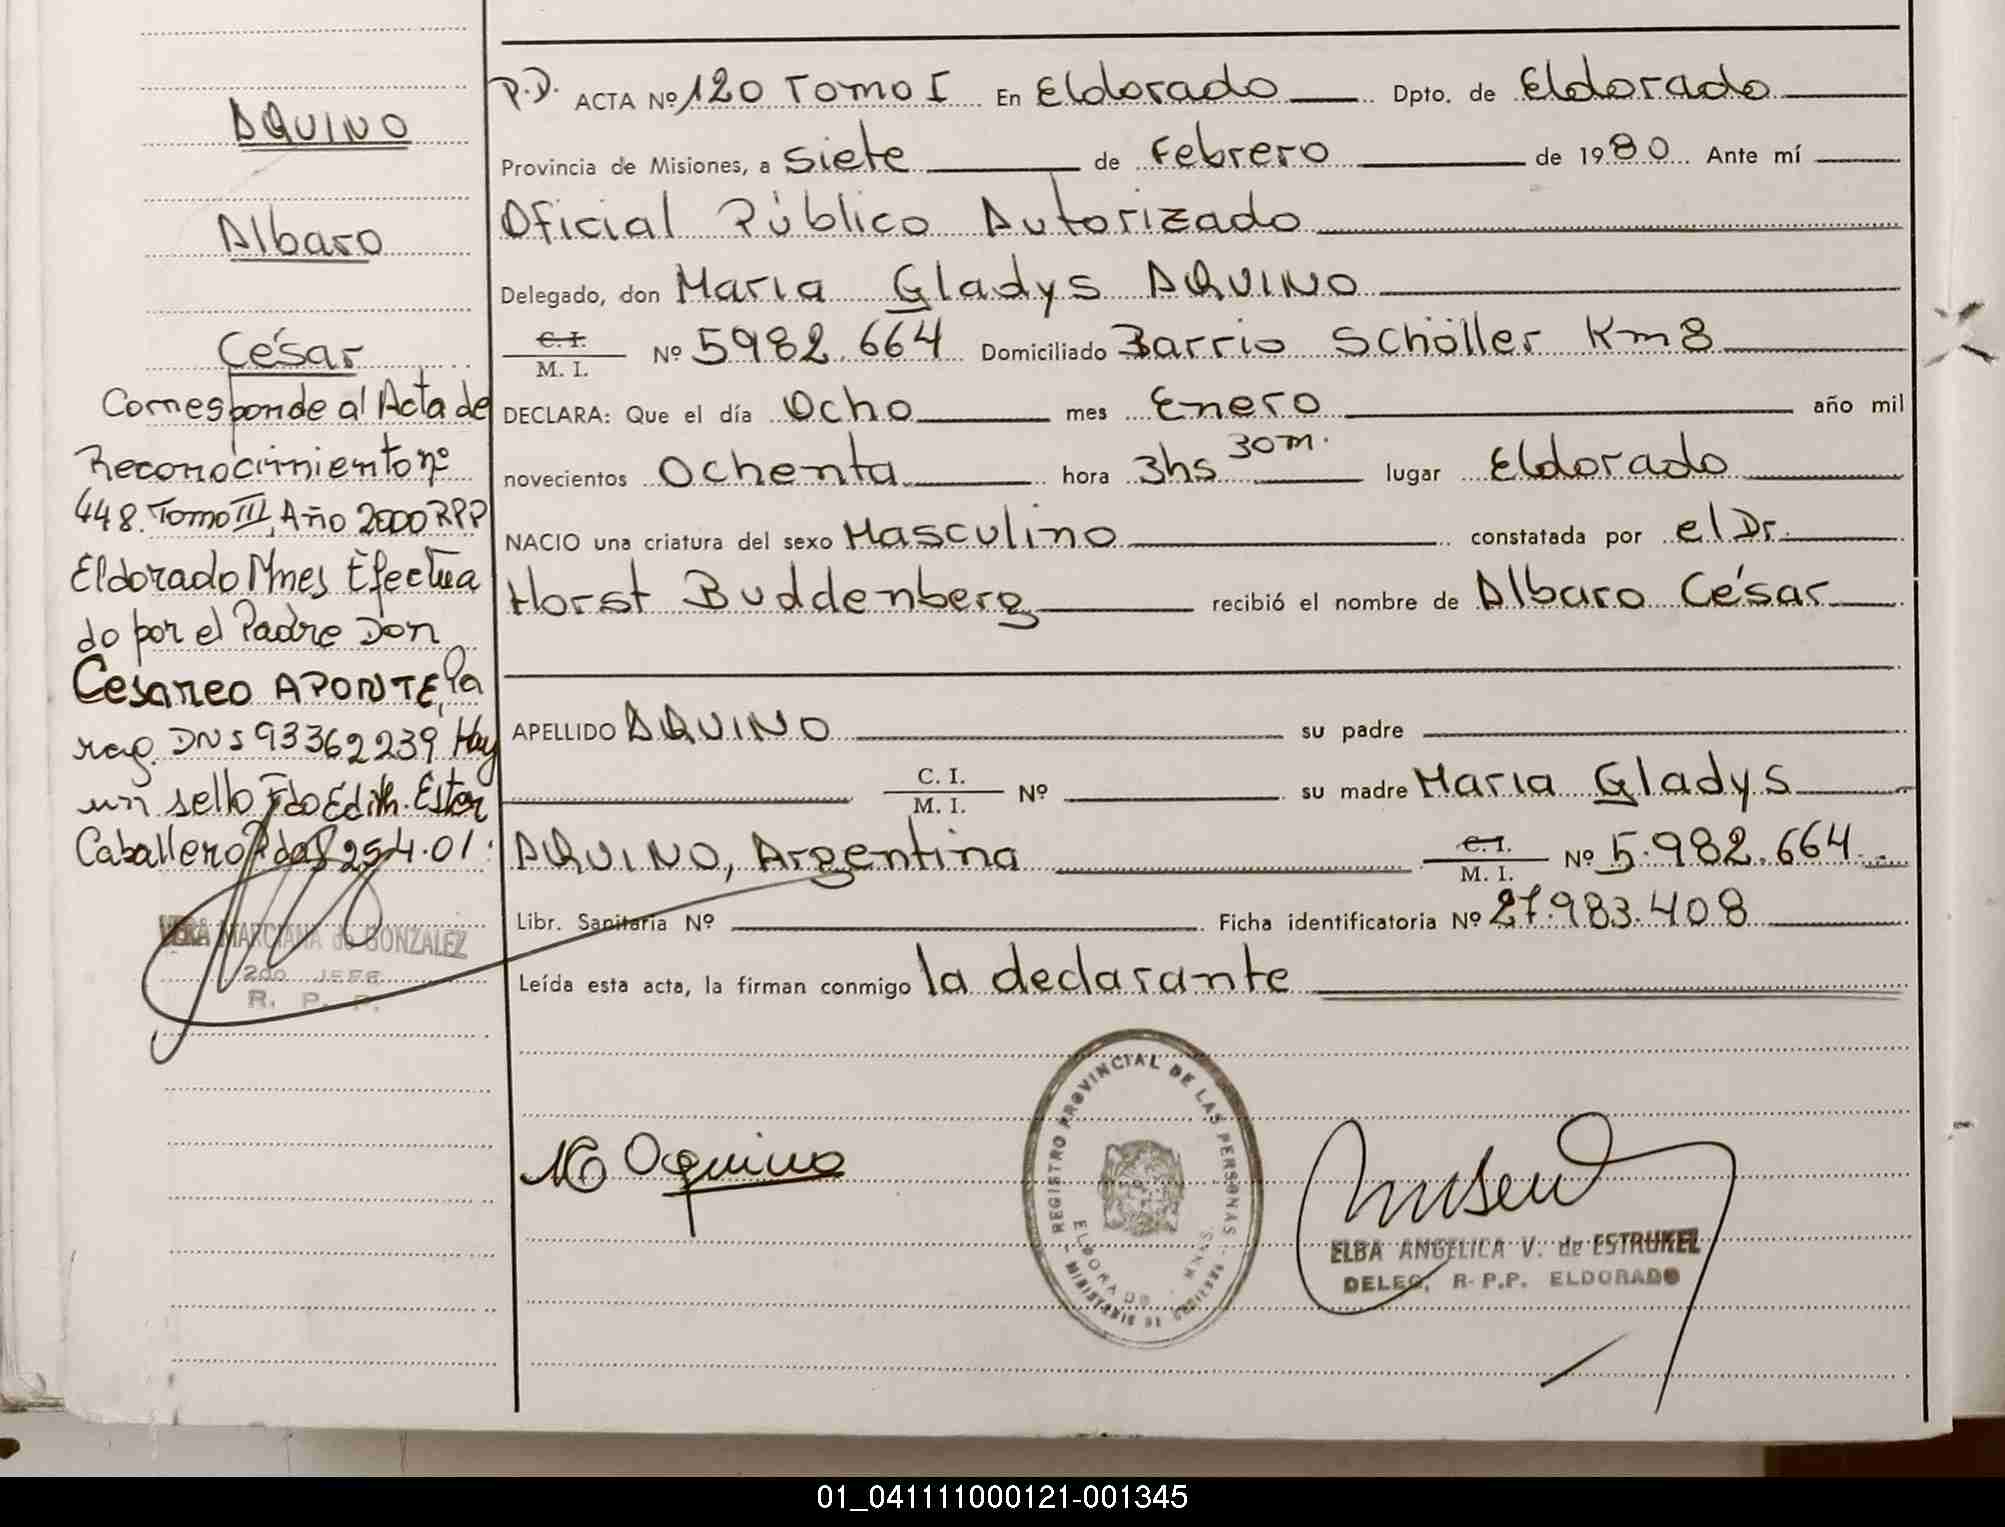 AQUINO
Albaro
César
Corresponde al Acta de
Reconocimiento nº
448. Tomo III, Año 2000 RPP
Eldorado Mnes Efectua
do por el Padre Don
Cesareo APONTE, Pa
rag. DNI 93362239, Hay
un sello Fdo Edith Ester
Caballero 25.4.01.
VERA MARCIANA de GONZALEZ
2do JEFE
R. P. P.
P.D. ACTA Nº 120 Tomo I En Eldorado Dpto. de Eldorado
Provincia de Misiones, a siete de Febrero de 1980 Ante mí
Oficial Público Autorizado
Delegado, don Maria Gladys AQUINO
C.I.
M. I. Nº 5982.664 Domiciliado Barrio Schöller Km 8
DECLARA: Que el día Ocho mes Enero año mil
novecientos Ochenta hora 3hs 30m. lugar Eldorado
NACIO una criatura del sexo Masculino constatada por el Dr.
Horst Buddenberg recibió el nombre de Albaro César
APELLIDO AQUINO su padre
C. I.
M. I. Nº su madre Maria Gladys
AQUINO, Argentina C.I.
M. I. Nº 5.982.664
Libr. Sanitaria Nº Ficha identificatoria Nº 27.983.408
Leída esta acta, la firman conmigo la declarante
REGISTRO PROVINCIAL DE LAS PERSONAS
ELDORADO MNES.
MINISTERIO DE GOBIERNO
M G Aquino
ELBA ANGELICA V. de ESTRUKEL
DELEG. R.P.P. ELDORADO
01_041111000121-001345